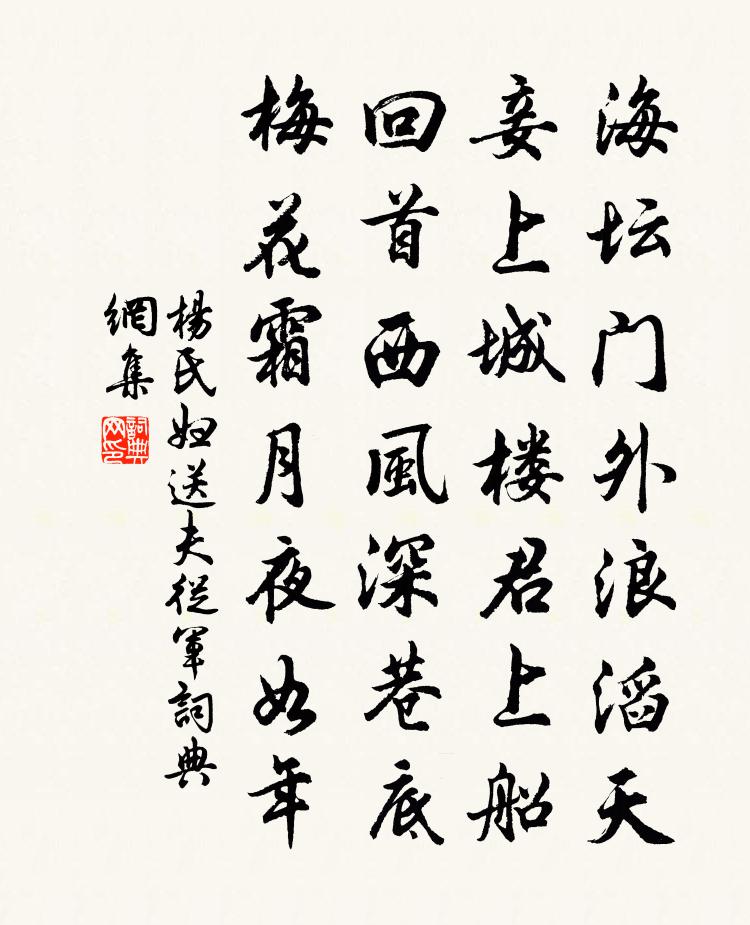 海坛门外浪滔天
妾上城楼君上船
回首西風深巷底
梅花霜月夜如年
楊氏妇送夫從軍詞典
網集
詞典
网印